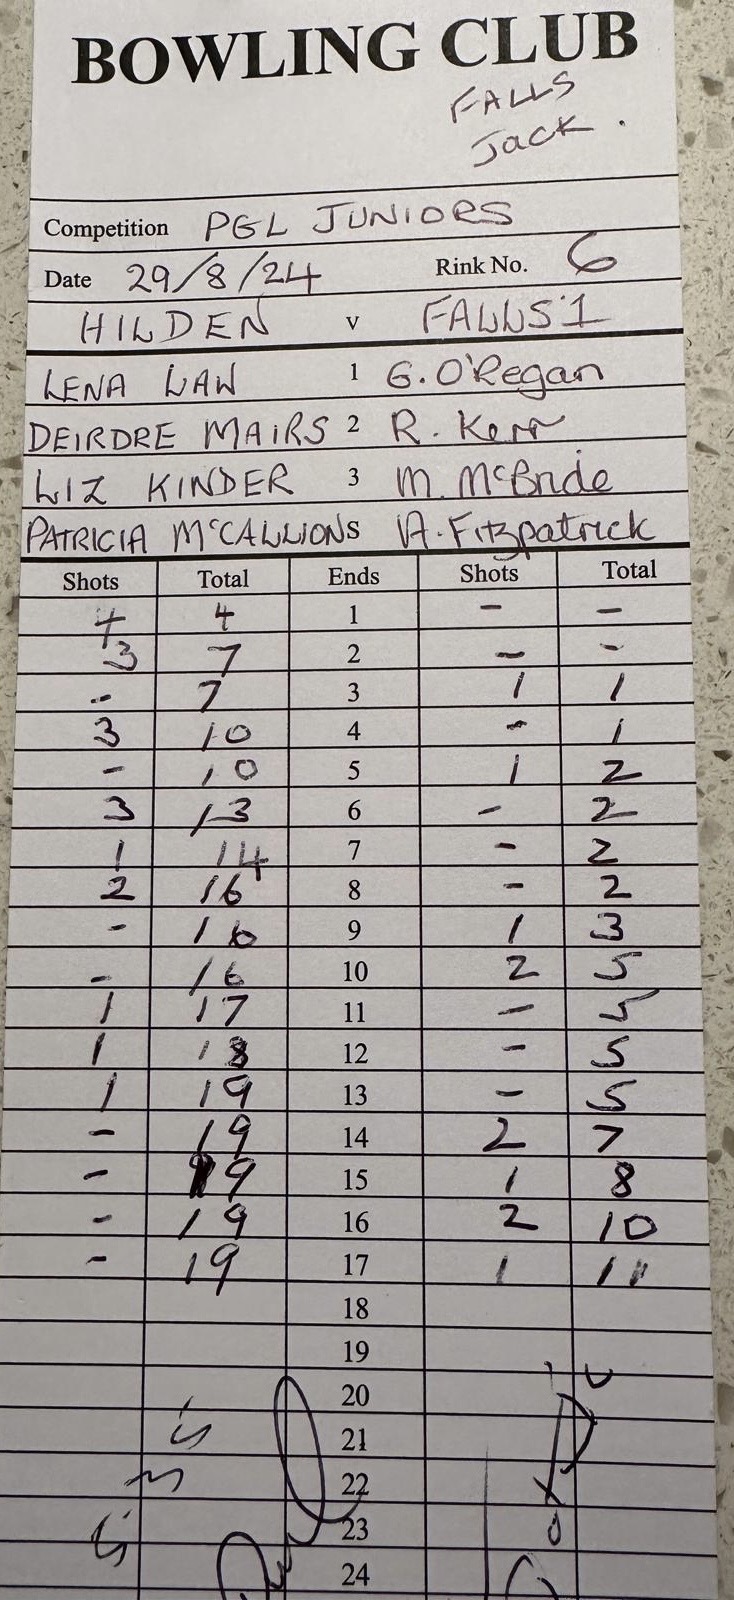 BOWLING CLUB
FALLS
Jack.
Competition PGL JUNIORS
Date 29/8/24 Rink No. 6
HILDEN v FALLS'1
LENA LAW 1 G. O'Regan
DEIRDRE MAIRS 2 R. Kerr
LIZ KINDER 3 M. McBride
PATRICIA McCALLION S A. Fitzpatrick
Shots Total Ends Shots Total
4 4 1 - -
3 7 2 - -
- 7 3 1 1
3 10 4 - 1
- 10 5 1 2
3 13 6 - 2
1 14 7 - 2
2 16 8 - 2
- 16 9 1 3
- 16 10 2 5
1 17 11 - 5
1 18 12 - 5
1 19 13 - 5
- 19 14 2 7
- 19 15 1 8
- 19 16 2 10
- 19 17 1 11
18
19
20
21
22
23
24